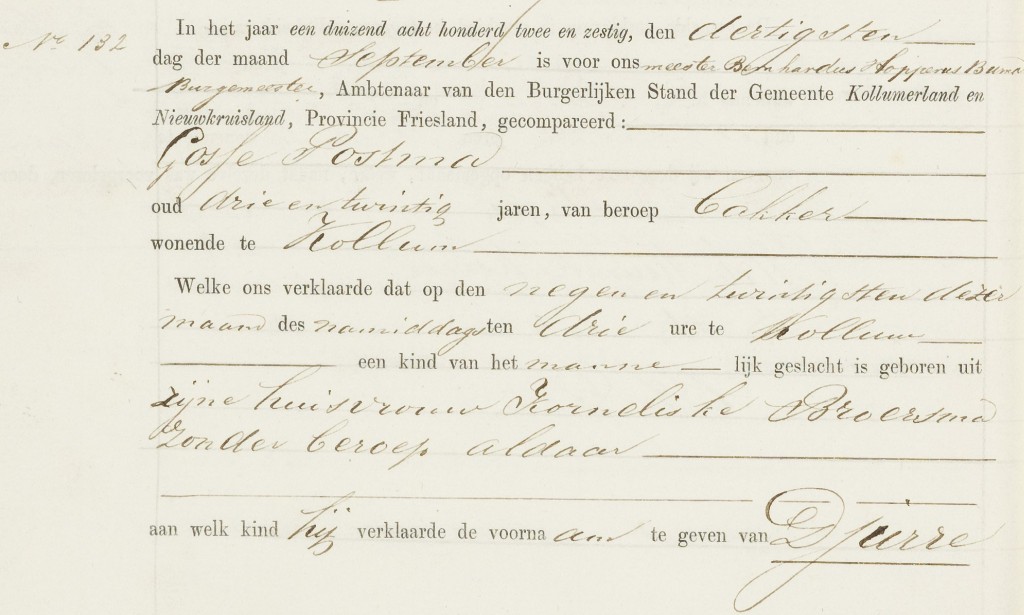 No 132
In het jaar een duizend acht honderd twee en zestig, den dertigsten
dag der maand September is voor ons meester Bernhardus Hopperus Buma
Burgemeester, Ambtenaar van den Burgerlijken Stand der Gemeente Kollumerland en
Nieuwkruisland, Provincie Friesland, gecompareerd:
Gosse Postma
oud drie en twintig jaren, van beroep Bakker
wonende te Kollum
Welke ons verklaarde dat op den negen en twintigsten dezer
maand des namiddags ten drie ure te Kollum
een kind van het manne lijk geslacht is geboren uit
zijne huisvrouw Korneliske Broersma
zonder beroep aldaar
aan welk kind hij verklaarde de voorna am te geven van Djurre